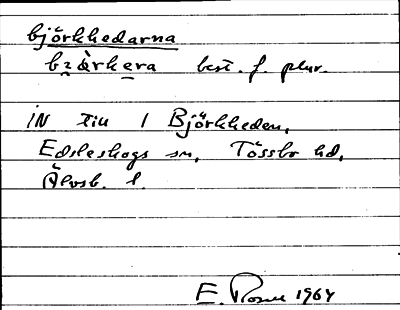 björkhedarna
bzàrkera best. f. plur.
IN till 1 Björkheden,
Edsleskogs sn, Tössbo hd,
Älvsb. l.
E. 1964